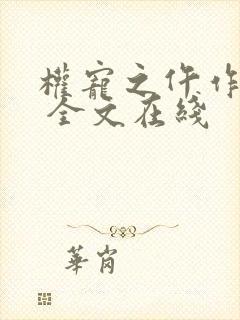 權寵之仵作
全文在綫
華崗